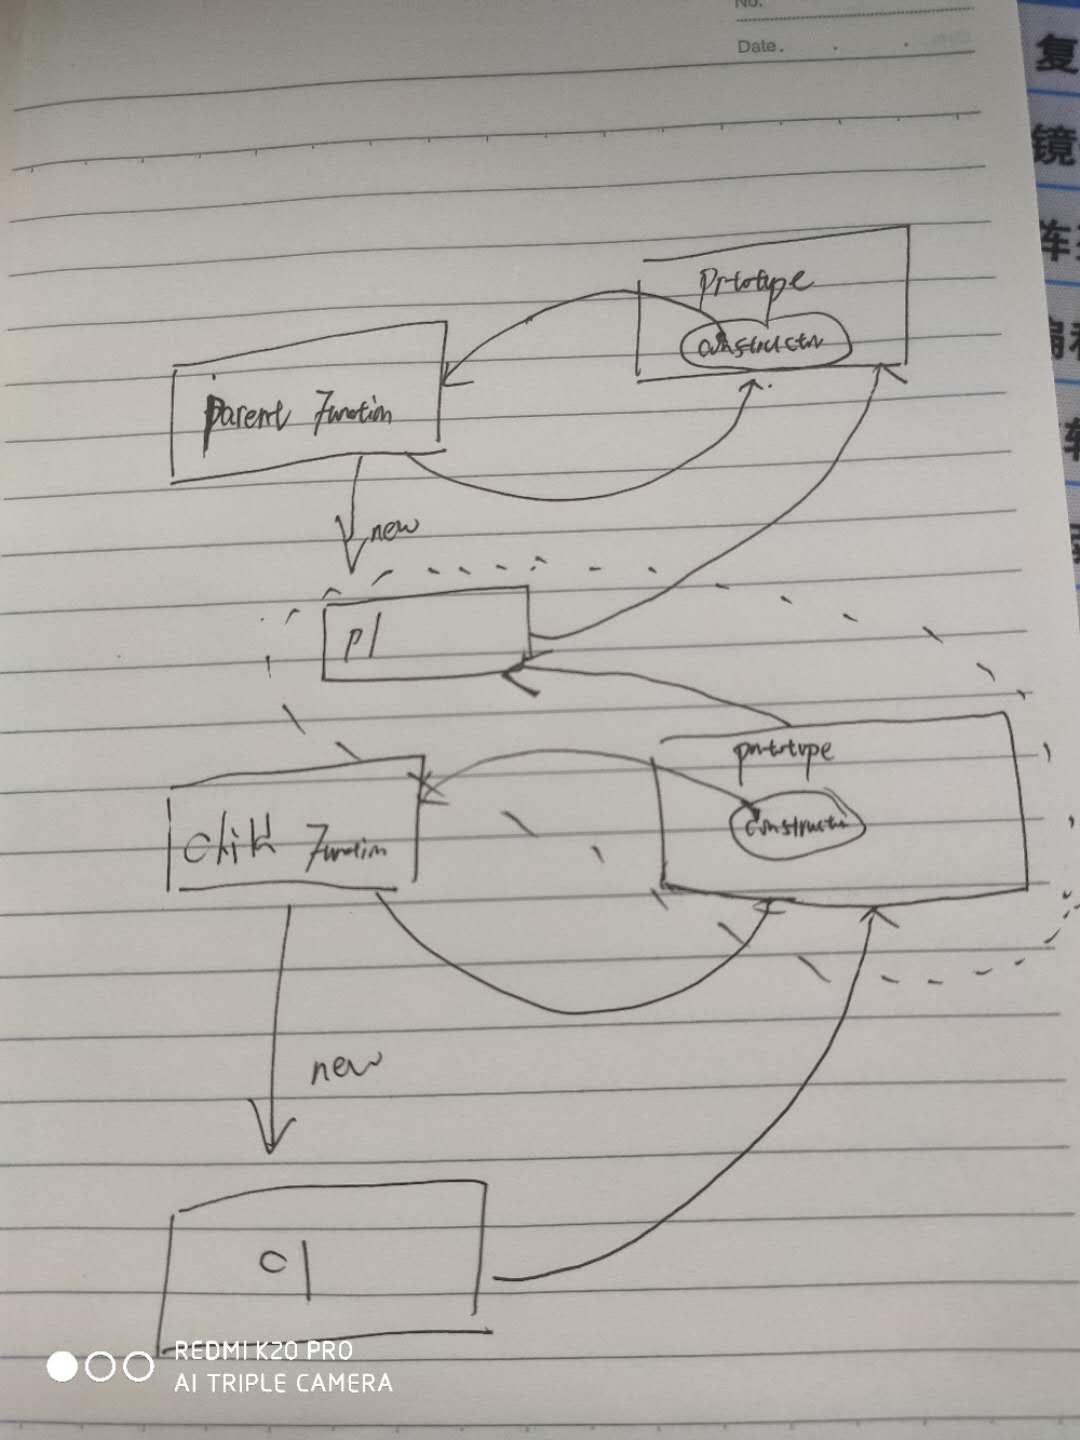 No.
Date.
prototype
constructor
parent Function
new
p1
prototype
constructor
child Function
new
c1
复
镜
车
REDMI K20 PRO
AI TRIPLE CAMERA